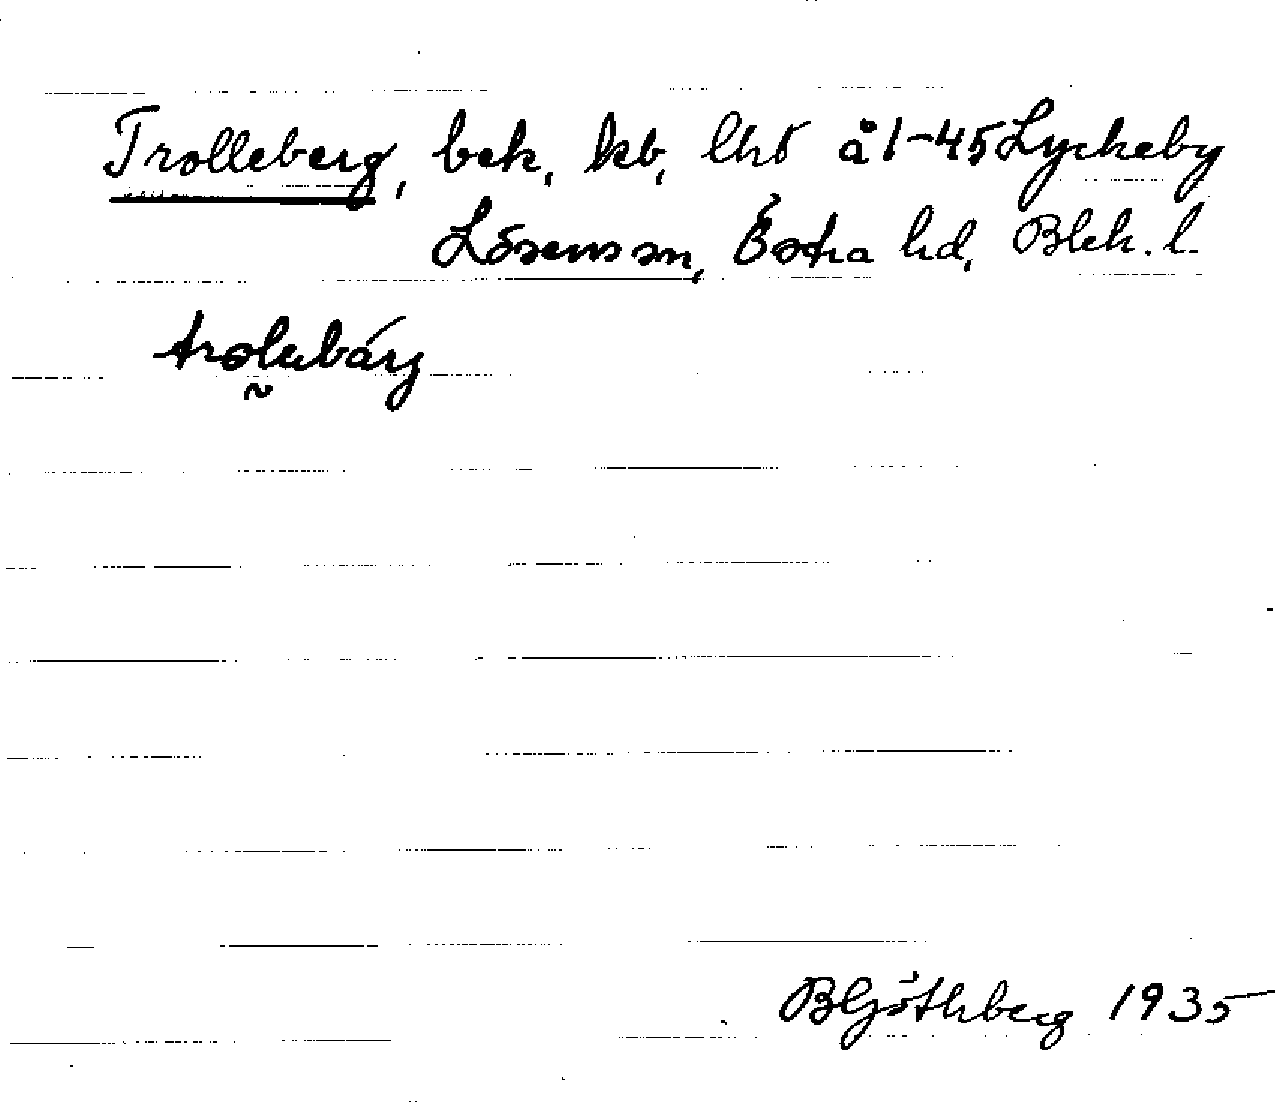 Trolleberg, bek, kb, lht å 1-45 Lyckeby
Lösens sn, Östra hd, Blek. l.
trolebärj
B Göthberg 1935